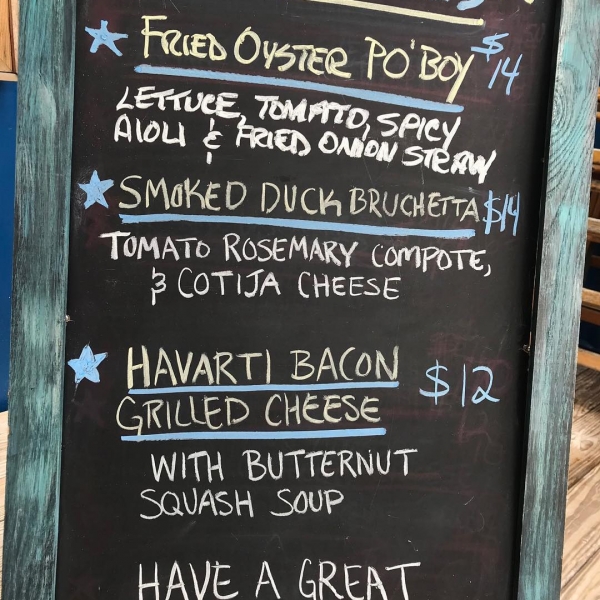 FRIED OYSTER PO'BOY $14
LETTUCE, TOMATO, SPICY
AIOLI & FRIED ONION STRAW
SMOKED DUCK BRUCHETTA $14
TOMATO ROSEMARY COMPOTE,
& COTIJA CHEESE
HAVARTI BACON $12
GRILLED CHEESE
WITH BUTTERNUT
SQUASH SOUP
HAVE A GREAT